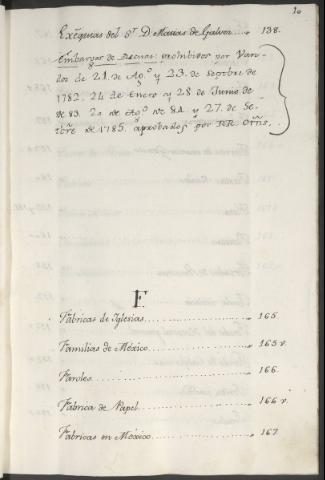 10
Exéquias del Sr. D. Matias de Galvez.... 138.
Embargos de prohibidos por Van-
dos de 21. de Agº. y 23. de Sepbre. de
1782. 24 de Enero y 28 de Junio de
de 83. 20 de Agº. de 84. y 27. de Se-
tbre. de 1785. aprobados por RR. Ornˢ.
F.
Fábricas de Iglesias.................. 165.
Familias de México.................. 165 v.
Faroles.................. 166.
Fábrica de Papel.................. 166 v.
Fabricas en México.................. 167.